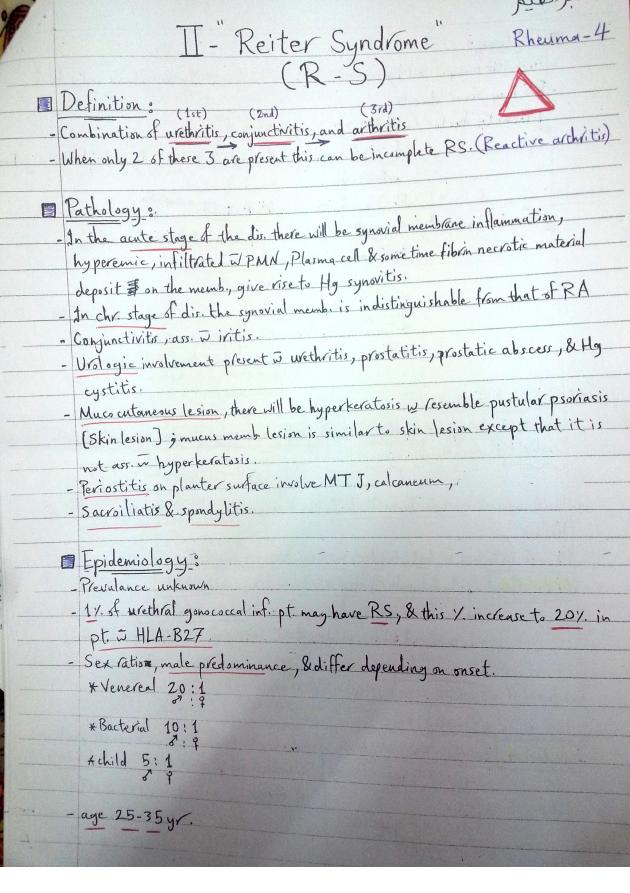 II - "Reiter Syndrome"
Rheuma-4
(R-S)
Definition :
(1st) (2nd) (3rd)
- Combination of urethritis, conjunctivitis, and arthritis
- When only 2 of these 3 are present this can be incomplete RS. (Reactive arthritis)
Pathology :
- In the acute stage of the dis. there will be synovial membrane inflammation,
hyperemic, infiltrated w̄ PMN, Plasma cell & some time fibrin necrotic material
deposit on the memb., give rise to Hg synovitis.
- In chr. stage of dis. the synovial memb. is indistinguishable from that of RA
- Conjunctivitis, ass. w̄ iritis.
- Urologic involvement present w̄ urethritis, prostatitis, prostatic abscess, & Hg
cystitis.
- Muco cutaneous lesion, there will be hyperkeratosis w resemble pustular psoriasis
[Skin lesion] ; mucus memb lesion is similar to skin lesion except that it is
not ass. w̄ hyperkeratosis.
- Periostitis on planter surface involve MTJ, calcaneum,.
- Sacroiliatis & spondylitis.
Epidemiology :
- Prevalance unknown
- 1% of urethral gonococcal inf. pt. may have RS, & this % increase to 20% in
pt. w̄ HLA-B27.
- Sex ratio, male predominance, & differ depending on onset.
* Venereal 20 : 1
♂ : ♀
* Bacterial 10 : 1
♂ : ♀
* child 5 : 1
♂ ♀
- age 25-35 yr.